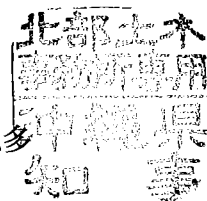 北部土木
事務所専用
沖縄県
知事